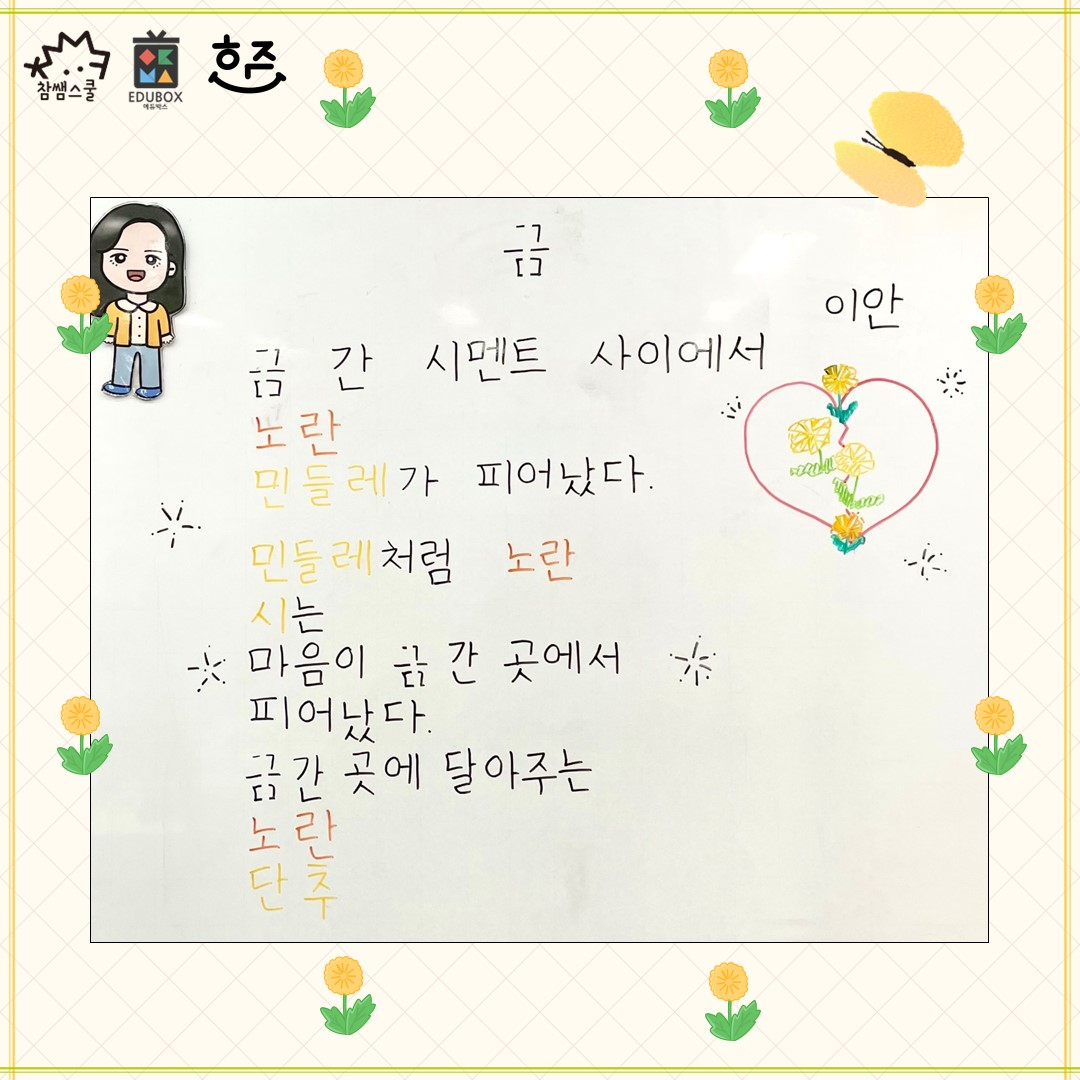 참쌤스쿨
EDUBOX
에듀박스
흐즈
금
이안
금 간 시멘트 사이에서
노란
민들레가 피어났다.
민들레처럼 노란
시는
마음이 금 간 곳에서
피어났다.
금간 곳에 달아주는
노란
단추